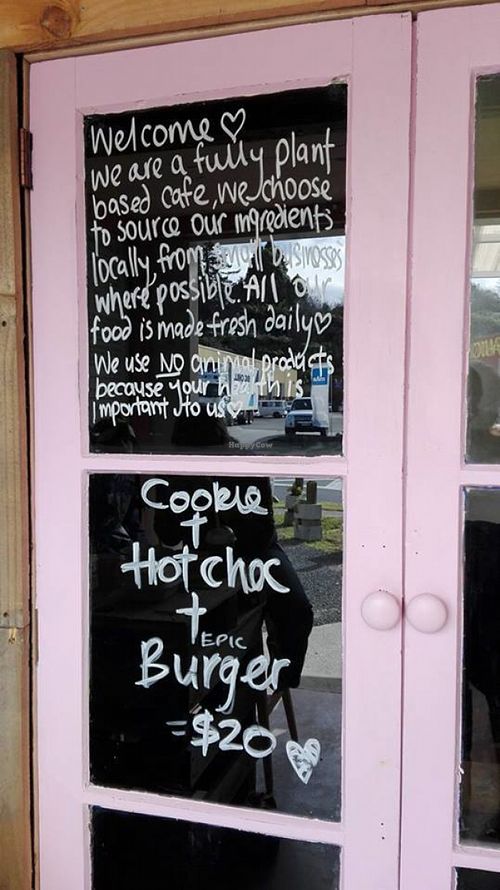 Welcome ♡
we are a fully plant
based cafe, we choose
to source our ingredients
locally, from small businesses
where possible. All our
food is made fresh daily♡
We use NO animal products
because your health is
important to us♡
HappyCow
Cookie
+
Hot choc
+
EPIC
Burger
= $20